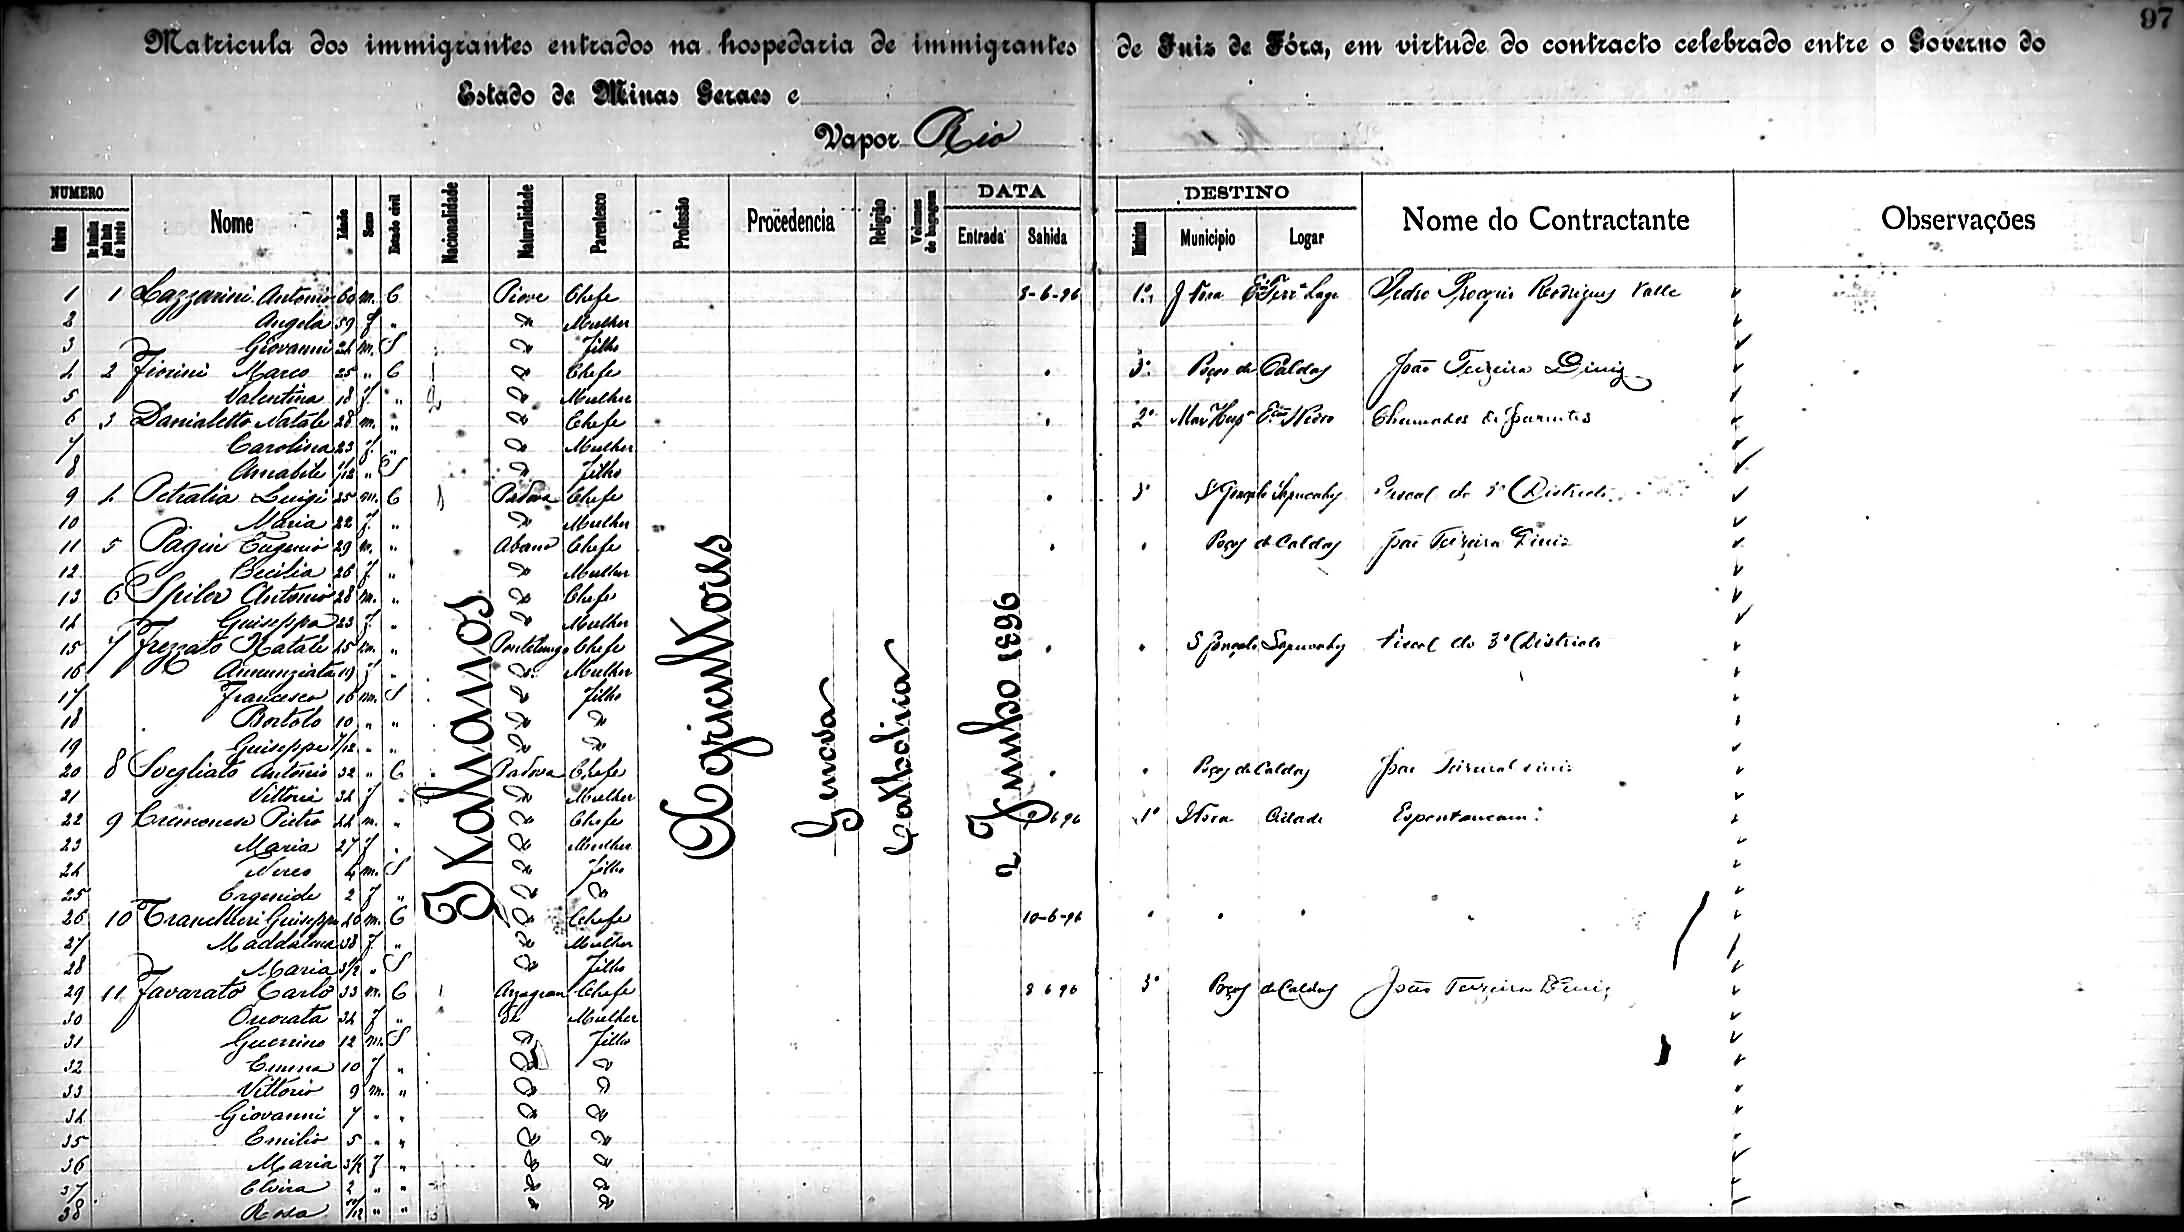 97
Matricula dos immigrantes entrados na hospedaria de immigrantes de Juiz de Fóra, em virtude do contracto celebrado entre o Governo do
Estado de Minas Geraes e
Vapor Rio
NUMERO DATA DESTINO
Ordem De familia pela lista de bordo Nome Idade Sexo Estado civil Nacionalidade Naturalidade Parentesco Profissão Procedencia Religião Volumes de bagagem Entrada Sahida Districto Municipio Logar Nome do Contractante Observações
Italianos Agricultores Genova Catholica 2 Junho 1896
1 1 Lazzarini Antonio 60 m. C Piove Chefe 8-6-96 1º J. Fora Pedro Rodrigues Valle
2 Angela 59 f " " Mulher
3 Giovanni 24 m. S " Filho
4 2 Fiorini Marco 25 " C " Chefe " 3º Poços de Caldas João Teixeira Diniz
5 Valentina 18 f. " " Mulher
6 3 Danialetto Natale 28 m. " " Chefe " 2º Mar Hesp Chamados de parentes
7 Carolina 23 f. " " Mulher
8 Amabile /12 " S " Filho
9 4 Petralia Luigi 25 m. C Padova Chefe " 3º S Gonçalo Sapucahy Fiscal do 3º Districto
10 Maria 22 f. " " Mulher
11 5 Pagin Eugenio 29 m. " Abano Chefe " " Poços de Caldas João Teixeira Diniz
12 Cecilia 26 f. " " Mulher
13 6 Spiler Antonio 28 m. " " Chefe
14 Guiseppa 23 f. " " Mulher
15 7 Frezzato Natale 45 m. " Pontelongo Chefe " " S Gonçalo Sapucahy Fiscal do 3º Districto
16 Annunziata 19 f " " Mulher
17 Francesco 16 m. S " Filho
18 Bortolo 10 " " " "
19 Guiseppe /12 " " " "
20 8 Svegliato Antonio 32 " C Padova Chefe " " Poços de Caldas João
21 Vittoria 34 f " " Mulher
22 9 Cremonese Pietro 44 m. " " Chefe 696 1º J Fora Cidade
23 Maria 27 f " " Mulher
24 Nereo 4 m. S " Filho
25 2 f " " "
26 10 Trancheri Guiseppe 40 m. C " Chefe 10-6-96 " " " "
27 Maddalena 38 f. " " Mulher
28 Maria 3½ " S " Filho
29 11 Favarato Carlo 33 m. C Arzegran Chefe 8 6 96 3º Poços de Caldas João Teixeira Diniz
30 Onorata 34 f " de Mulher
31 Guerrino 12 m. S " Filho
32 Emma 10 f " " "
33 Vittorio 9 m. " " "
34 Giovanni 7 " " " "
35 Emilio 5 " " " "
36 Maria 3½ f " " "
37 Elvira 2 " " " "
38 Rosa /12 " " " "